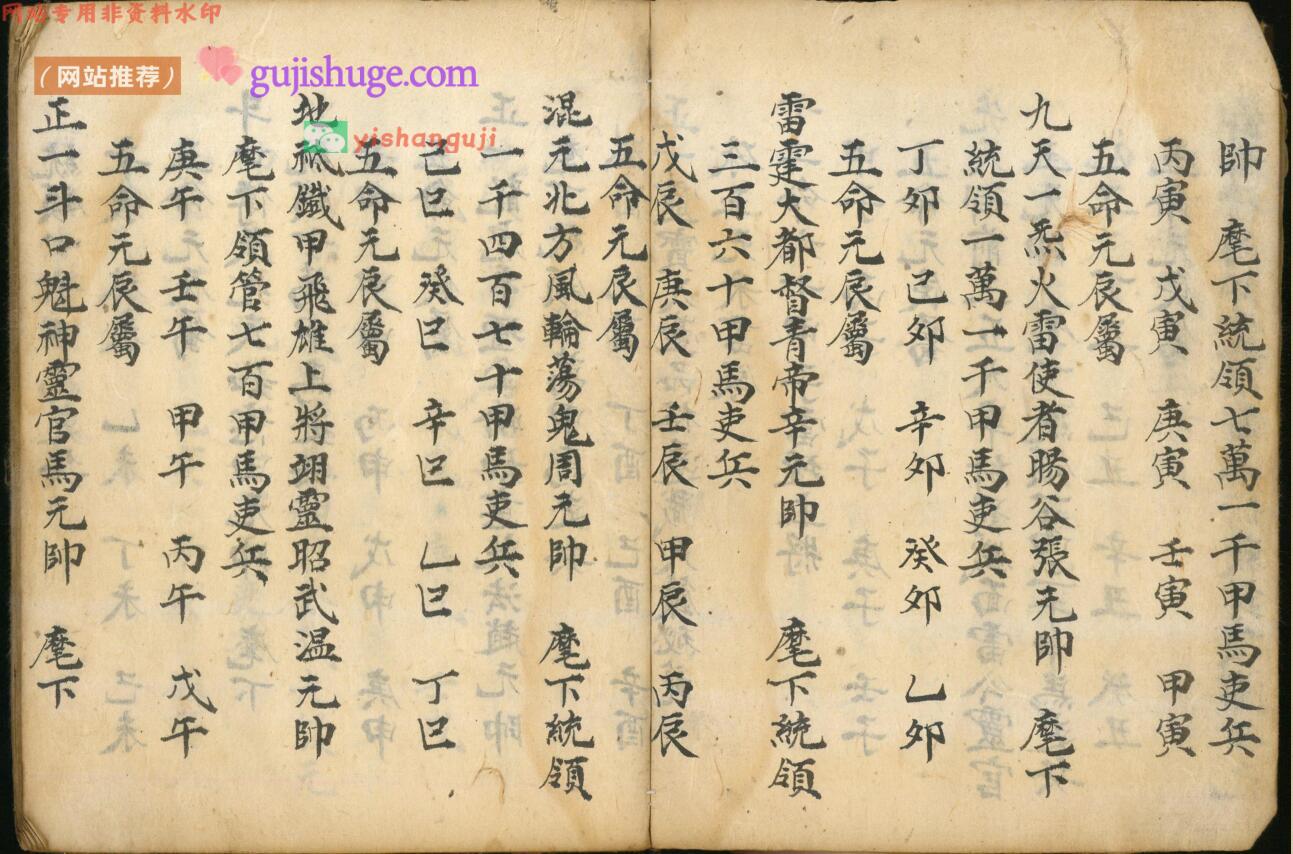 网站专用非资料水印
（网站推荐）
gujishuge.com
yishanguji
帥 麾下統領七萬一千甲馬吏兵
丙寅 戊寅 庚寅 壬寅 甲寅
五命元辰屬
九天一炁火雷使者暘谷張元帥 麾下
統領一萬一千甲馬吏兵
丁卯 己卯 辛卯 癸卯 乙卯
五命元辰屬
雷霆大都督青帝辛元帥 麾下統領
三百六十甲馬吏兵
戊辰 庚辰 壬辰 甲辰 丙辰
五命元辰屬
混元北方風輪蕩鬼周元帥 麾下統領
一千四百七十甲馬吏兵
己巳 癸巳 辛巳 乙巳 丁巳
五命元辰屬
地祇鐵甲飛雄上將翊靈昭武温元帥
麾下領管七百甲馬吏兵
庚午 壬午 甲午 丙午 戊午
五命元辰屬
正一斗口魁神靈官馬元帥 麾下